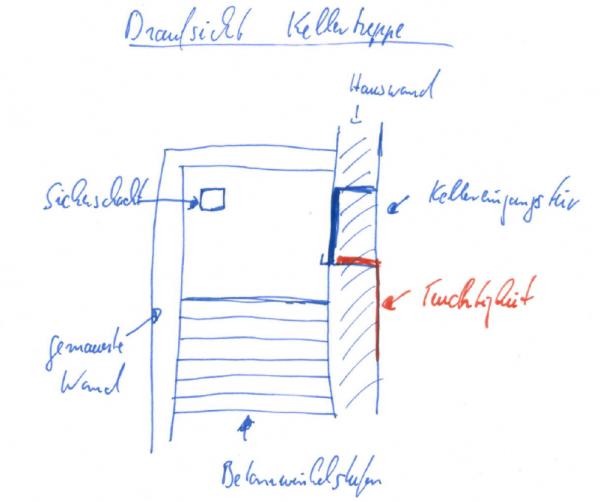 Draufsicht Kellertreppe
Hauswand
Sickerschacht
Kellereingangstür
Feuchtigkeit
gemauerte
Wand
Betonwinkelstufen